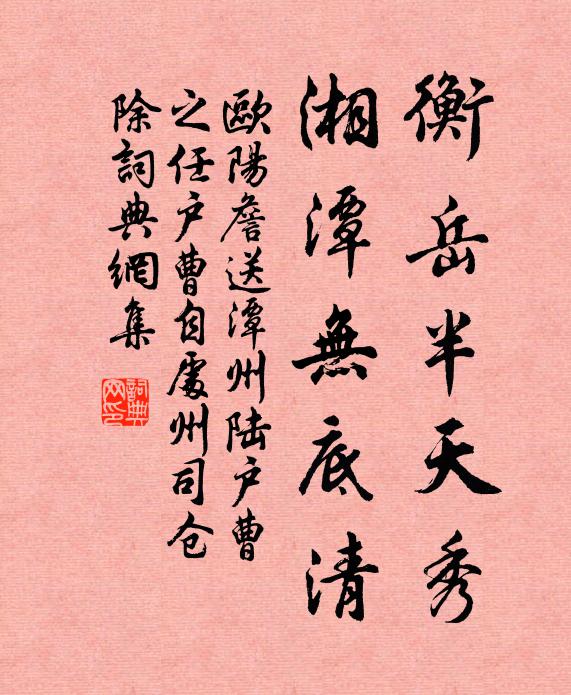 衡岳半天秀
湘潭無底清
歐陽詹送潭州陆户曹
之任户曹自處州司仓
除詞典網集
詞典网印